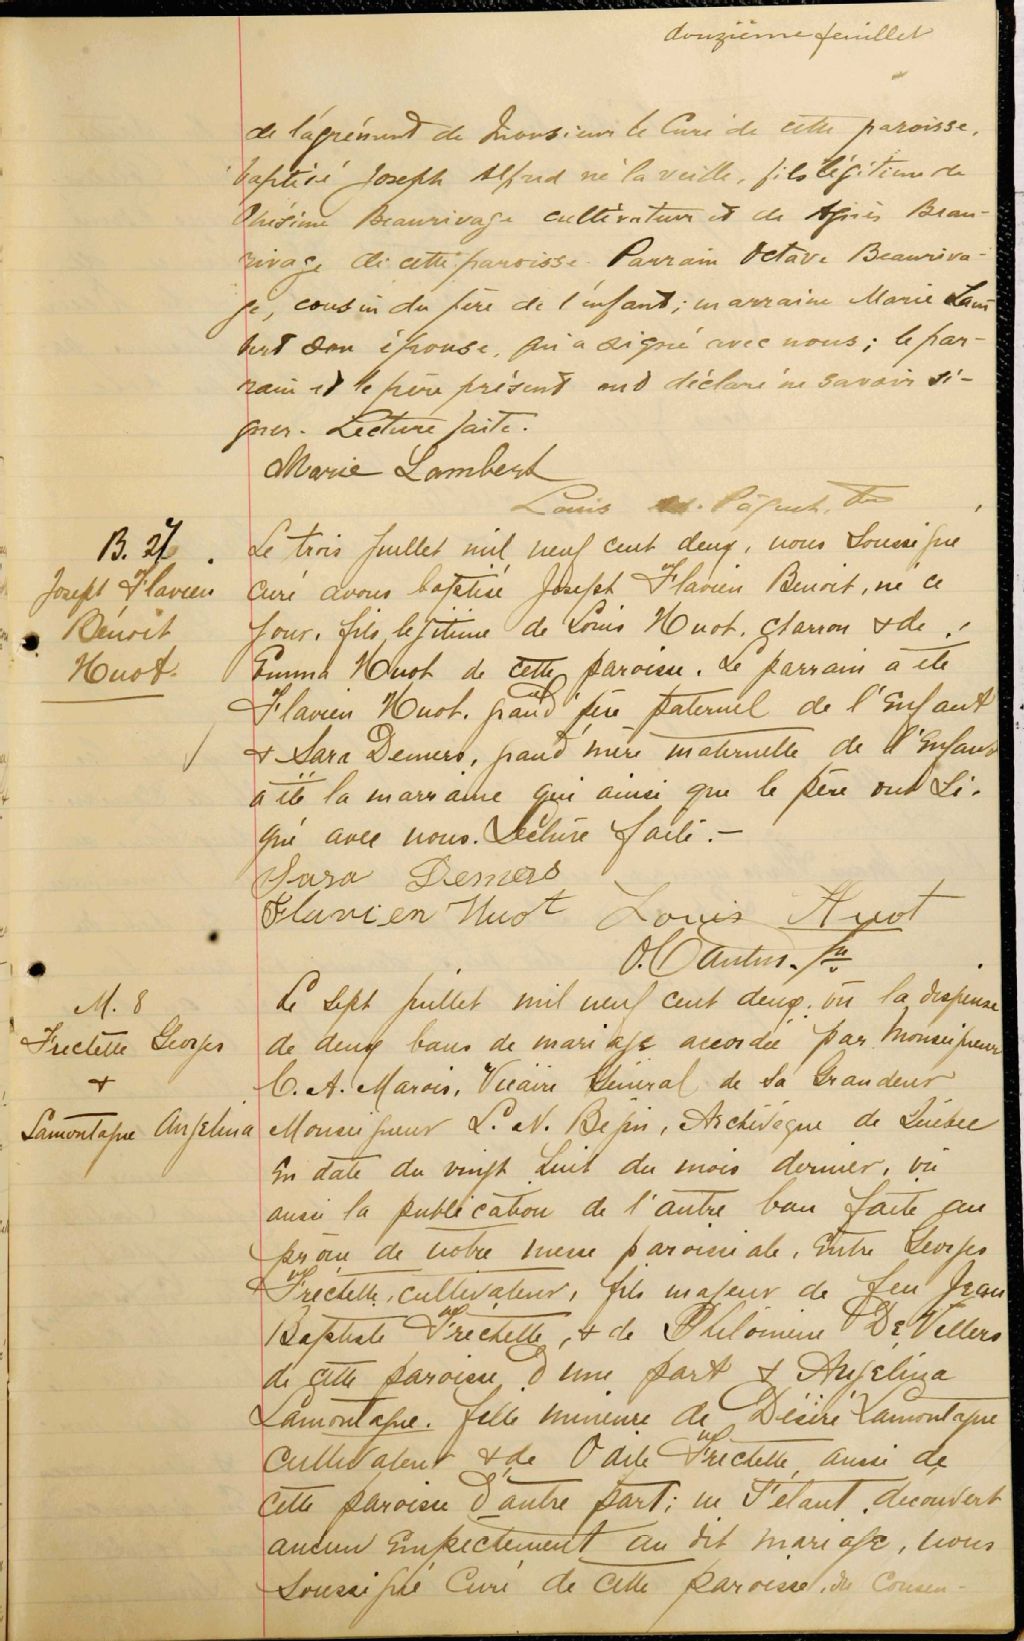 douzième feuillet
de l'agrément de Monsieur le Curé de cette paroisse,
baptisé Joseph Alfred né la veille, fils légitime de
Onésime Beaurivage cultivateur et de Agnès Beau-
rivage de cette paroisse. Parrain Octave Beauriva-
ge, cousin du père de l'enfant; marraine Marie Lam
bert son épouse, qui a signé avec nous; le par-
rain et le père présent ont déclaré ne savoir si-
gner. Lecture faite.
Marie Lambert
Louis Ad. Pâquet, Ptre
B. 27
Joseph Flavien
Bénoit
Huot
Le trois Juillet mil neuf cent deux, nous Soussigné
Curé avons baptisé Joseph Flavien Benoit, né ce
jour, fils légitime de Louis Huot, charron & de
Emma Huot de cette paroisse. Le parrain a été
Flavien Huot, grand'père paternel de l'Enfant
& Sara Demers, grand'mère maternelle de l'Enfant
a été la marraine qui ainsi que le père ont Si-
gné avec nous. Lecture faite. -
Sara Demers
Flavien Huot Louis Huot
O. Cantin, Ptre
M. 8
Frechette Georges
+
Lamontagne Angelina
Le Sept Juillet mil neuf cent deux, vu la dispense
de deux bans de mariage accordée par Monseigneur
C. A. Marois, Vicaire Général de Sa Grandeur
Monseigneur L. N. Bégin, Archévêque de Québec
En date du vingt huit du mois dernier, vû
aussi la publication de l'autre ban faite au
prône de notre messe paroissiale, Entre Georges
Fréchette, cultivateur, fils majeur de feu Jean
Baptiste Fréchette, & de Philomène De Villers
de cette paroisse d'une part & Angelina
Lamontagne. fille mineure de Désiré Lamontagne
Cultivateur & de Odile Fréchette, aussi de
cette paroisse d'autre part; ne S'étant découvert
aucun Empêchement au dit mariage, nous
Soussigné Curé de cette paroisse, du Consen-